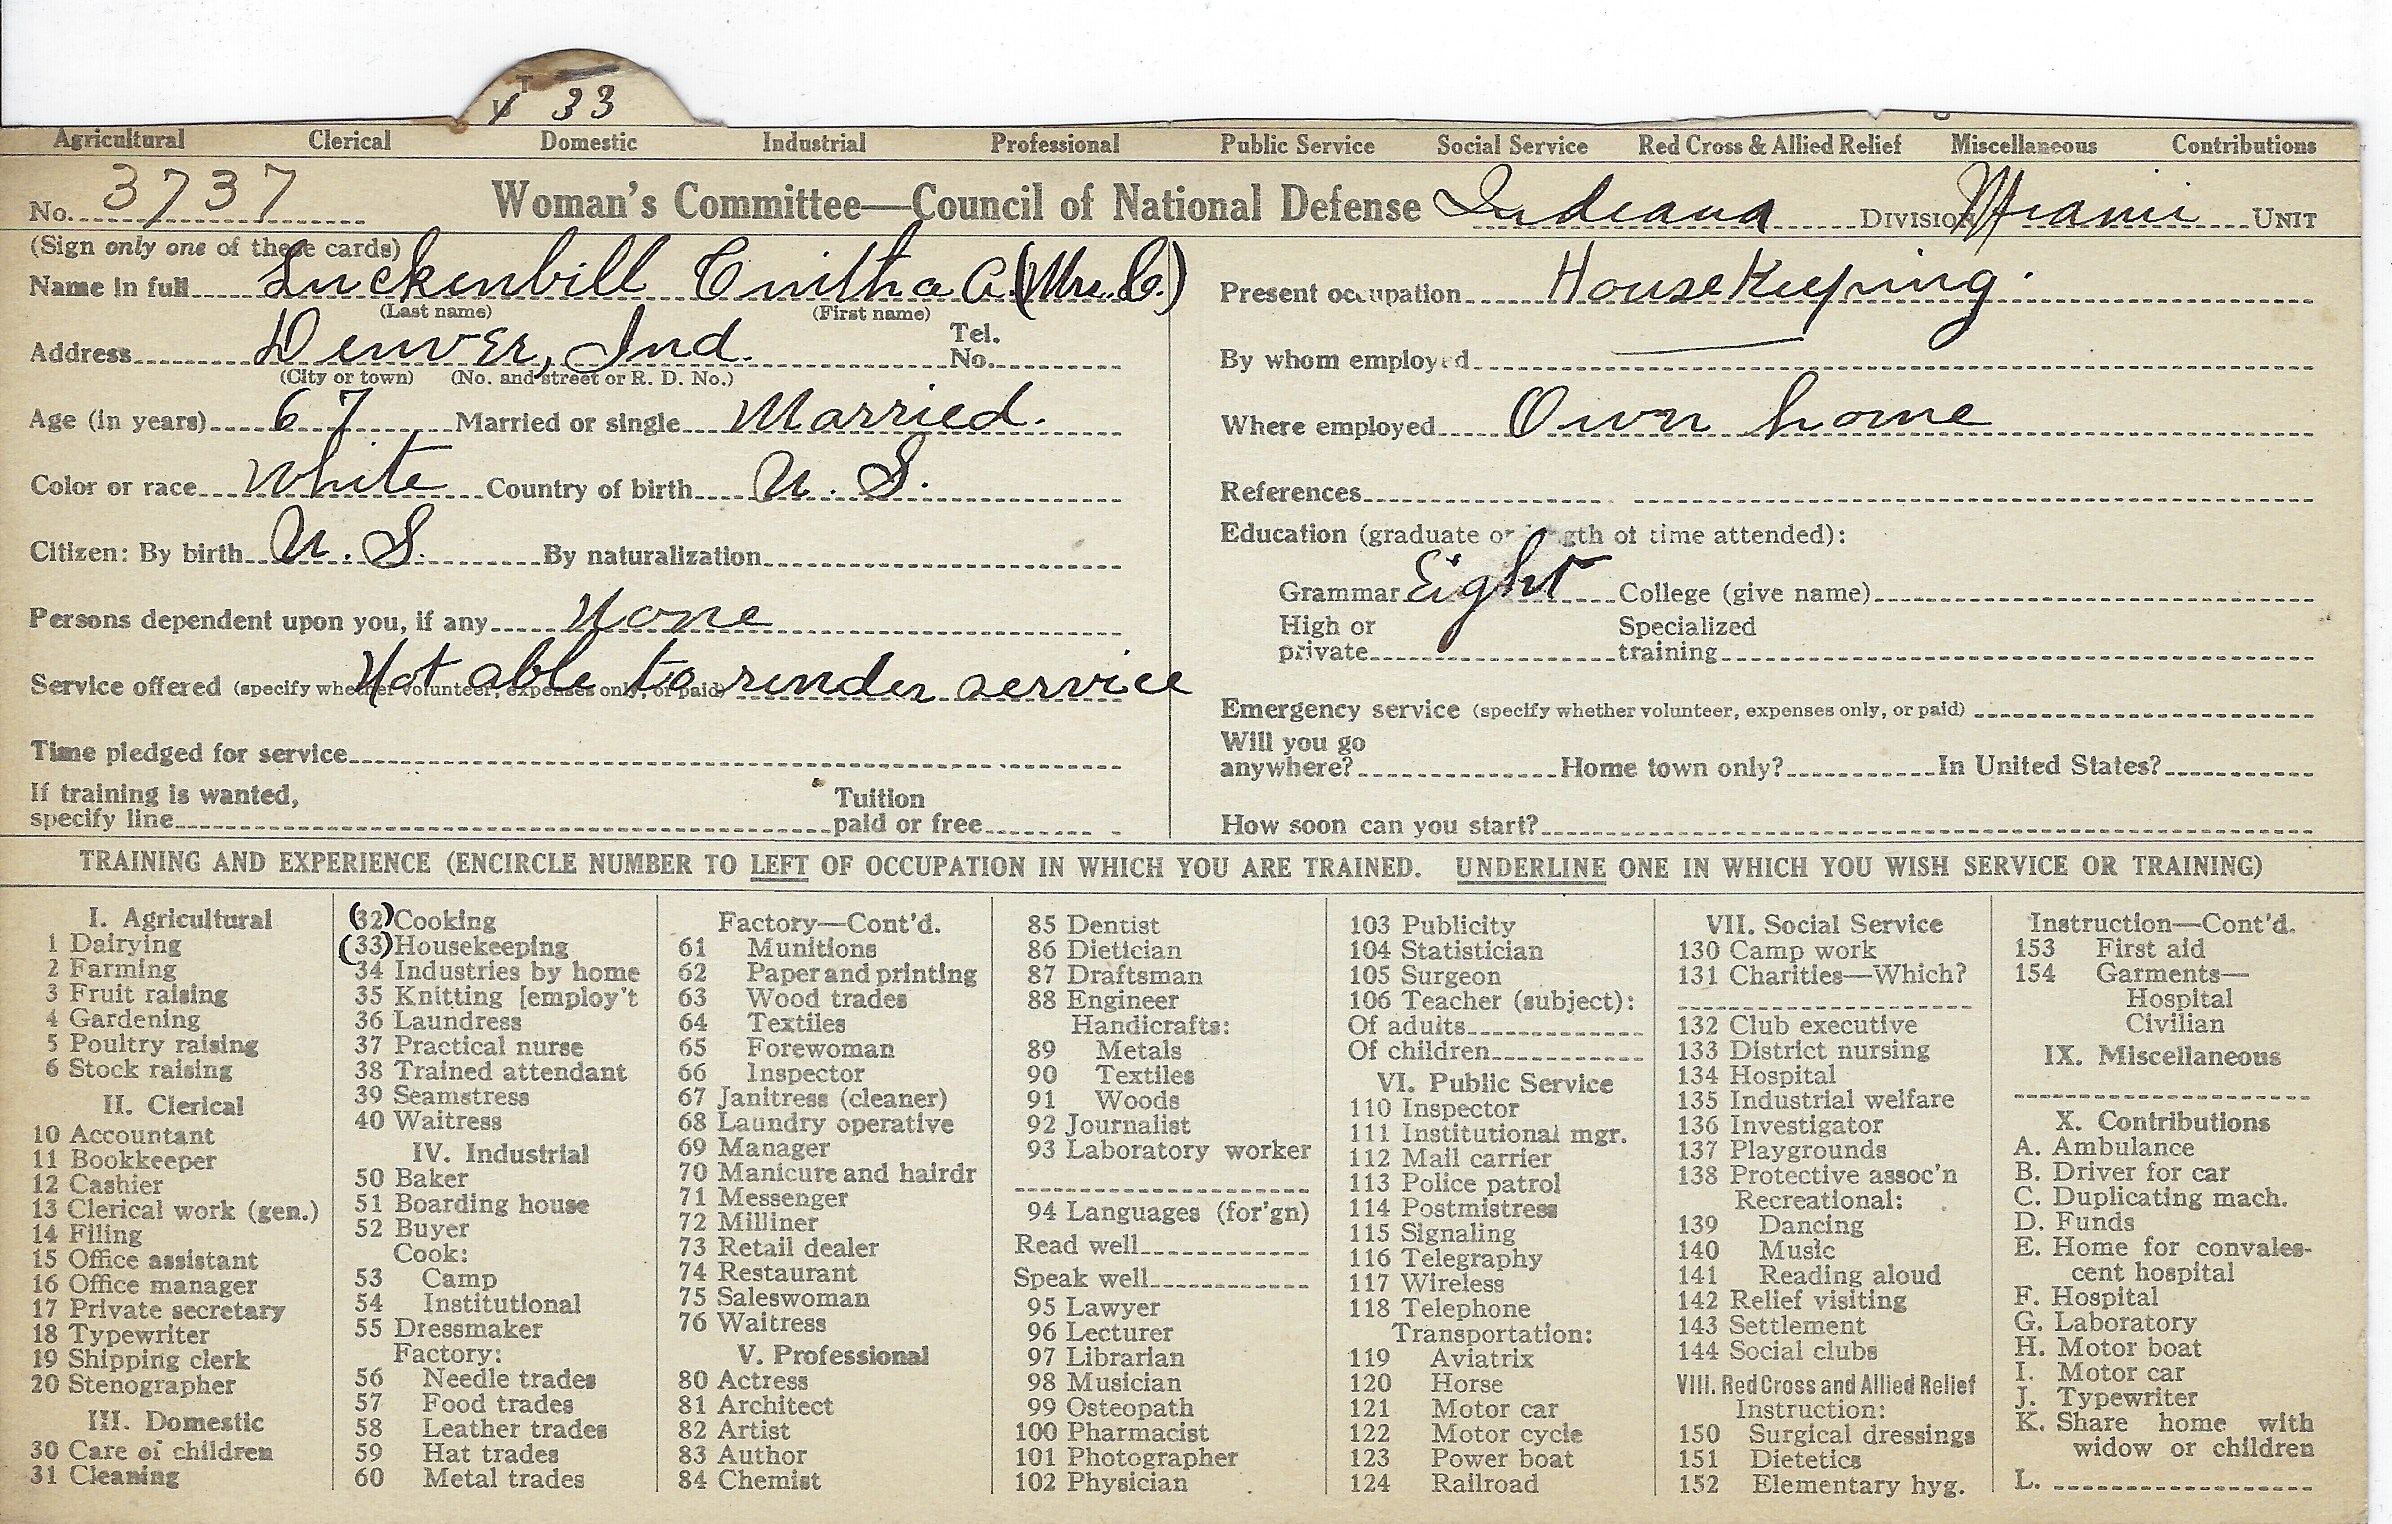 33
Agricultural Clerical Domestic Industrial Professional Public Service Social Service Red Cross & Allied Relief Miscellaneous Contributions
No. 3737 Woman's Committee—Council of National Defense Indiana DIVISION Miami UNIT
(Sign only one of these cards)
Name in full Luckenbill C. (Mrs. C.)
(Last name) (First name)
Address Denver, Ind. Tel. No.
(City or town) (No. and street or R. D. No.)
Age (in years) 67 Married or single Married.
Color or race White Country of birth U. S.
Citizen: By birth U. S. By naturalization
Persons dependent upon you, if any None
Service offered (specify whether volunteer, expenses only, or paid) Not able to render service
Time pledged for service
If training is wanted,
specify line Tuition paid or free
Present occupation Housekeeping.
By whom employed
Where employed Own home
References
Education (graduate or length of time attended):
Grammar Eight College (give name)
High or private Specialized training
Emergency service (specify whether volunteer, expenses only, or paid)
Will you go
anywhere? Home town only? In United States?
How soon can you start?
TRAINING AND EXPERIENCE (ENCIRCLE NUMBER TO LEFT OF OCCUPATION IN WHICH YOU ARE TRAINED. UNDERLINE ONE IN WHICH YOU WISH SERVICE OR TRAINING)
I. Agricultural
1 Dairying
2 Farming
3 Fruit raising
4 Gardening
5 Poultry raising
6 Stock raising
II. Clerical
10 Accountant
11 Bookkeeper
12 Cashier
13 Clerical work (gen.)
14 Filing
15 Office assistant
16 Office manager
17 Private secretary
18 Typewriter
19 Shipping clerk
20 Stenographer
III. Domestic
30 Care of children
31 Cleaning
(32) Cooking
(33) Housekeeping
34 Industries by home
35 Knitting [employ't
36 Laundress
37 Practical nurse
38 Trained attendant
39 Seamstress
40 Waitress
IV. Industrial
50 Baker
51 Boarding house
52 Buyer
Cook:
53 Camp
54 Institutional
55 Dressmaker
Factory:
56 Needle trades
57 Food trades
58 Leather trades
59 Hat trades
60 Metal trades
Factory—Cont'd.
61 Munitions
62 Paper and printing
63 Wood trades
64 Textiles
65 Forewoman
66 Inspector
67 Janitress (cleaner)
68 Laundry operative
69 Manager
70 Manicure and hairdr
71 Messenger
72 Milliner
73 Retail dealer
74 Restaurant
75 Saleswoman
76 Waitress
V. Professional
80 Actress
81 Architect
82 Artist
83 Author
84 Chemist
85 Dentist
86 Dietician
87 Draftsman
88 Engineer
Handicrafts:
89 Metals
90 Textiles
91 Woods
92 Journalist
93 Laboratory worker
94 Languages (for'gn)
Read well
Speak well
95 Lawyer
96 Lecturer
97 Librarian
98 Musician
99 Osteopath
100 Pharmacist
101 Photographer
102 Physician
103 Publicity
104 Statistician
105 Surgeon
106 Teacher (subject):
Of adults
Of children
VI. Public Service
110 Inspector
111 Institutional mgr.
112 Mail carrier
113 Police patrol
114 Postmistress
115 Signaling
116 Telegraphy
117 Wireless
118 Telephone
Transportation:
119 Aviatrix
120 Horse
121 Motor car
122 Motor cycle
123 Power boat
124 Railroad
VII. Social Service
130 Camp work
131 Charities—Which?
132 Club executive
133 District nursing
134 Hospital
135 Industrial welfare
136 Investigator
137 Playgrounds
138 Protective assoc'n
Recreational:
139 Dancing
140 Music
141 Reading aloud
142 Relief visiting
143 Settlement
144 Social clubs
VIII. Red Cross and Allied Relief
Instruction:
150 Surgical dressings
151 Dietetics
152 Elementary hyg.
Instruction—Cont'd.
153 First aid
154 Garments—
Hospital
Civilian
IX. Miscellaneous
X. Contributions
A. Ambulance
B. Driver for car
C. Duplicating mach.
D. Funds
E. Home for convales-
cent hospital
F. Hospital
G. Laboratory
H. Motor boat
I. Motor car
J. Typewriter
K. Share home with
widow or children
L.